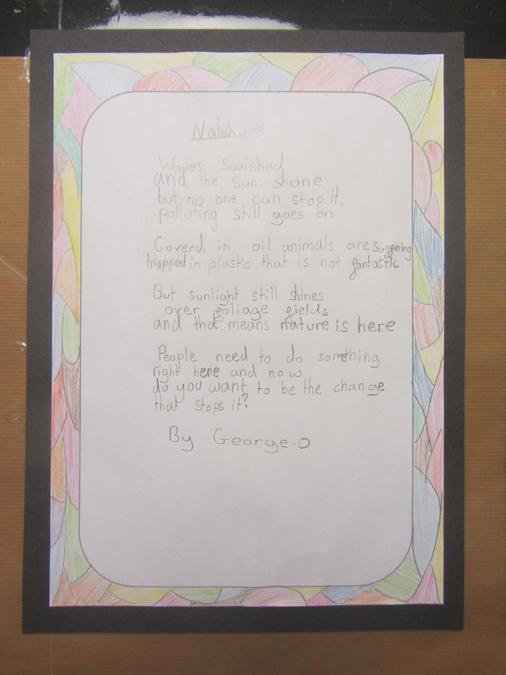 Natuhure
Waves swished
and the sun shone
but no one can stop it,
polluting still goes on
Coverd in oil animals are suffering
trapped in plastic that is not fantastic
But sunlight still shines
over foliage fields
and that means nature is here
People need to do something
right here and now
do you want to be the change
that stops it?
By George.O